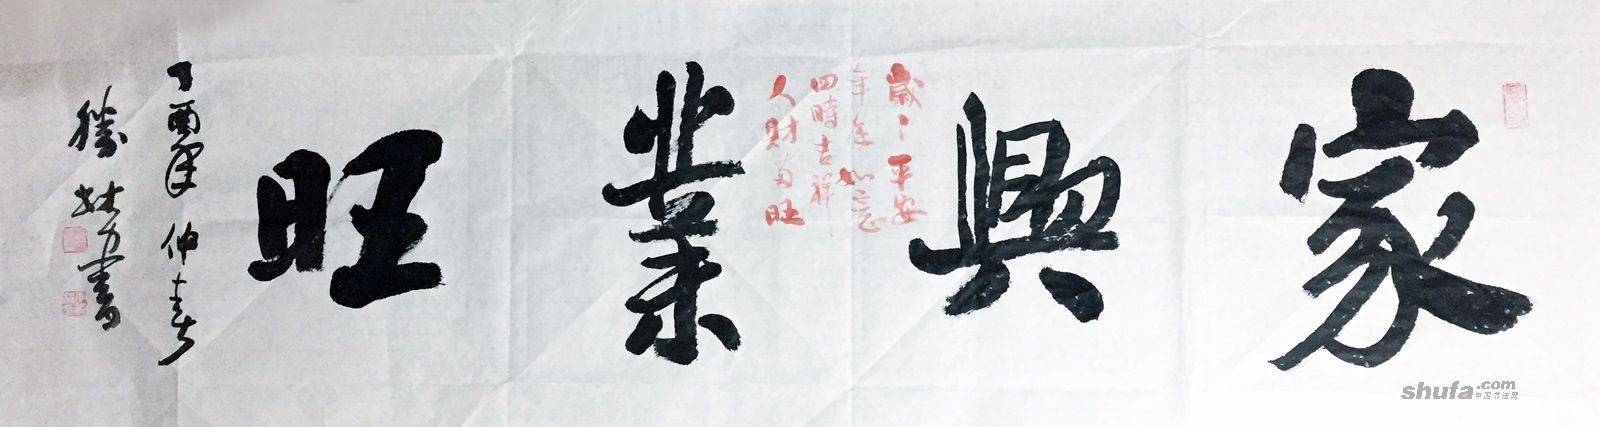 家興業旺
歲〻平安
年年如意
四時吉祥
人財両旺
丁酉年仲春
勝林方書
shufa.com
中国书法网